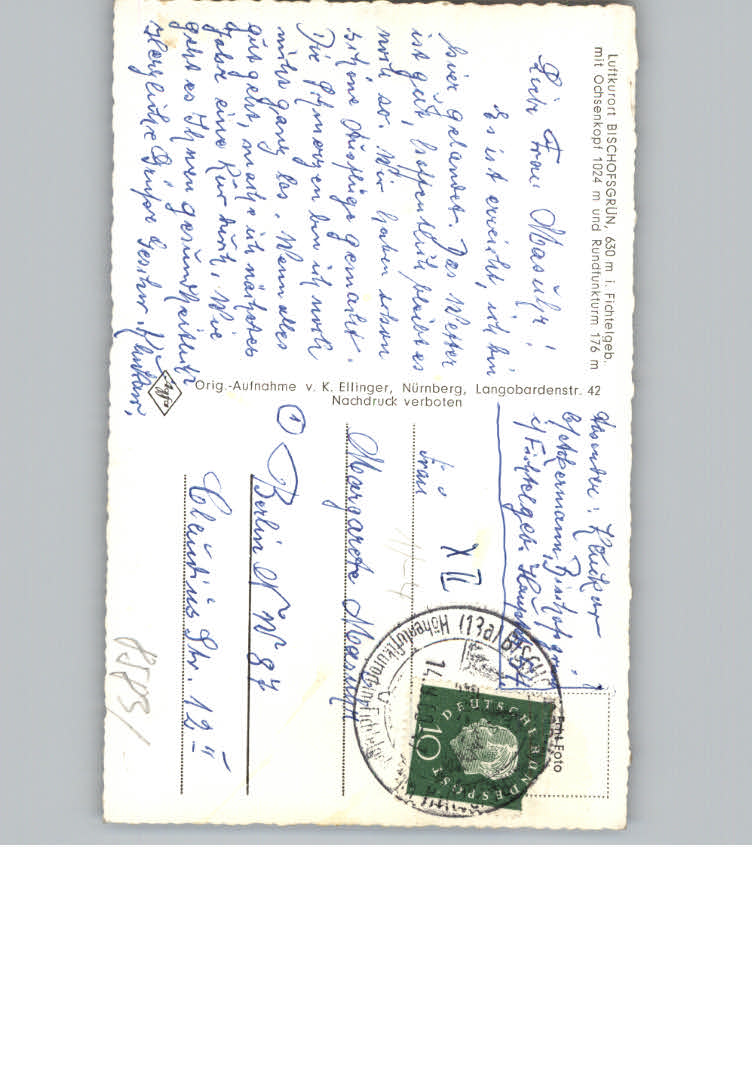 Luftkurort BISCHOFSGRÜN, 630 m i. Fichtelgeb.
mit Ochsenkopf 1024 m und Rundfunkturm 176 m
Liebe Frau Masuhr!
Es ist erreicht, ich bin
hier gelandet. Das Wetter
ist gut, hoffentlich bleibt es
noch so. Wir haben schon
schöne Ausflüge gemacht.
Die Schmerzen bin ich noch
nicht ganz los. Wenn alles
gut geht, mache ich nächstes
Jahr eine Kur durch. Wie
geht es Ihnen gesundheitlich
Herzliche Grüße
Orig.-Aufnahme v. K. Ellinger, Nürnberg, Langobardenstr. 42
Nachdruck verboten
Agfa
Absender:
b/Ackermann, Bischofsgrün
i/Fichtelgeb.
X II
Frau
Margarete Masuhr
① Berlin NW 87
Claudius Str. 12 II
Echt Foto
DEUTSCHE BUNDESPOST
10
(13a) Höhenluftkurort